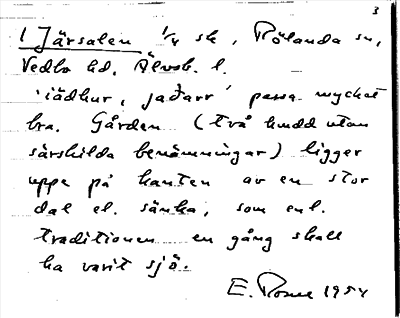 3
1 Järsalen 1/4 sk, Rölanda sn,
Vedbo hd. Älvsb. l.
'iädhur, jaðarr' passa mycket
bra. Gården (två hmd utan
särskilda benämningar) ligger
uppe på kanten av en stor
dal el. sänka, som enl.
traditionen en gång skall
ha varit sjö.
E. 1954